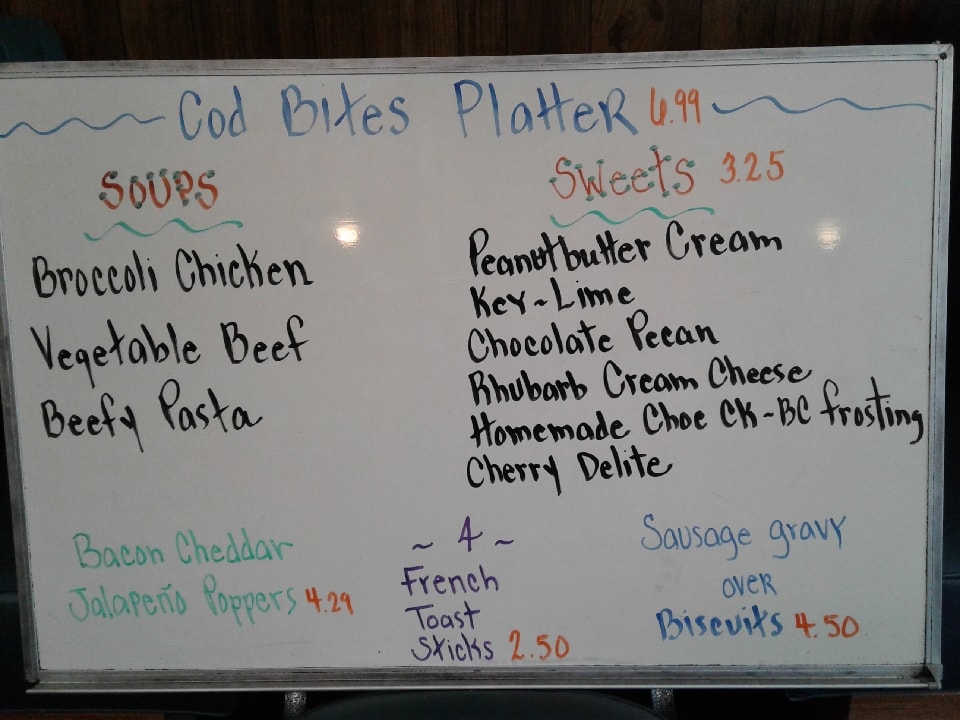 Cod Bites Platter 6.99
Soups
Broccoli Chicken
Vegetable Beef
Beefy Pasta
Sweets 3.25
Peanutbutter Cream
Key~Lime
Chocolate Pecan
Rhubarb Cream Cheese
Homemade Choc CK-BC frosting
Cherry Delite
Bacon Cheddar
Jalapeño Poppers 4.29
~ 4 ~
French
Toast
Sticks 2.50
Sausage gravy
over
Biscuits 4.50